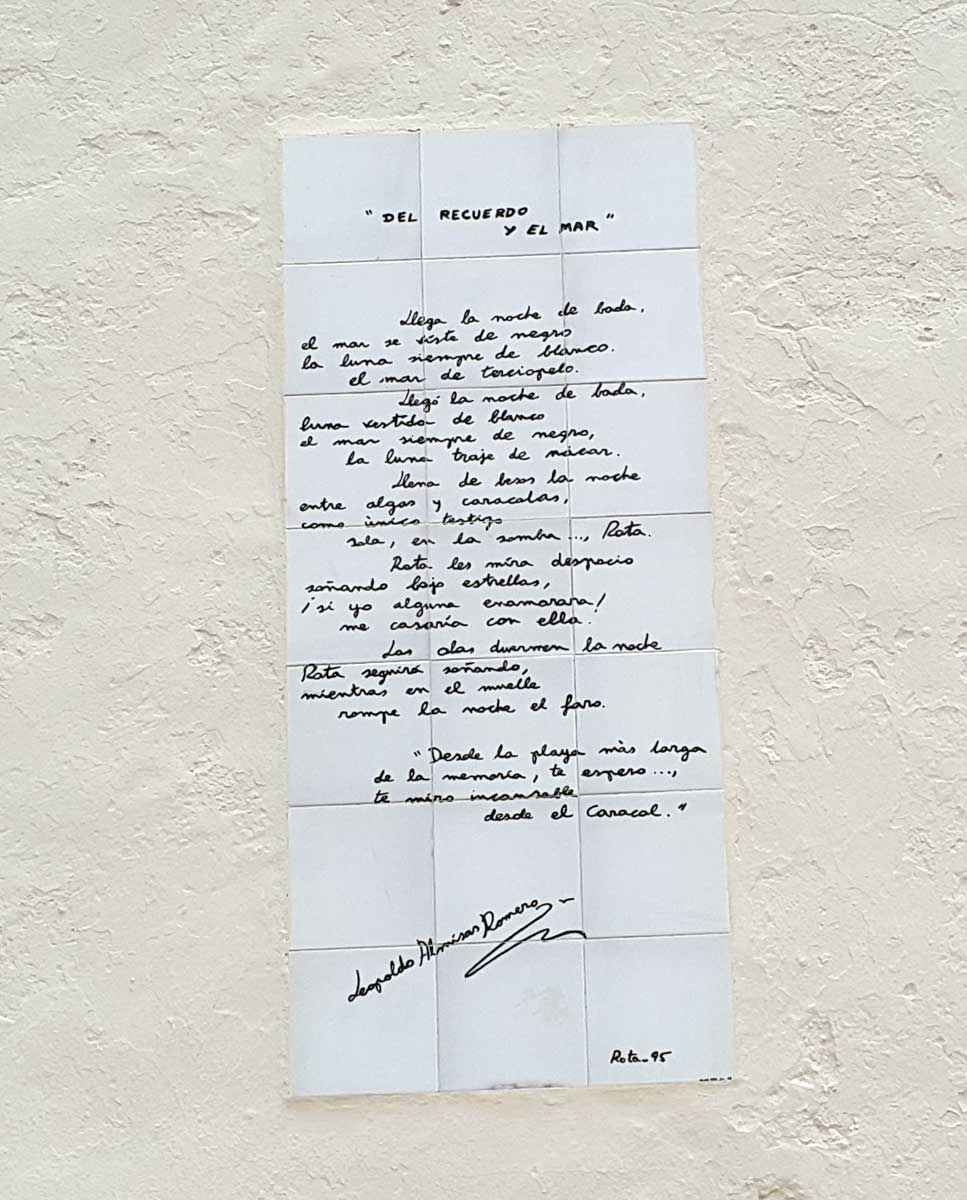 " DEL RECUERDO
Y EL MAR "
Llega la noche de boda,
el mar se viste de negro
la luna siempre de blanco.
el mar de terciopelo.
Llegó la noche de boda,
luna vestida de blanco
el mar siempre de negro,
la luna traje de nácar.
Llena de besos la noche
entre algas y caracolas,
como único testigo
sola, en la sombra ..., Rota.
Rota les mira despacio
soñando bajo estrellas,
¡si yo alguna enamorara!
me casaría con ella.
Las olas duermen la noche
Rota seguirá soñando,
mientras en el muelle
rompe la noche el faro.
"Desde la playa más larga
de la memoria, te espero ...,
te miro incansable
desde el Caracol."
Leopoldo Almisas Romero
Rota-95